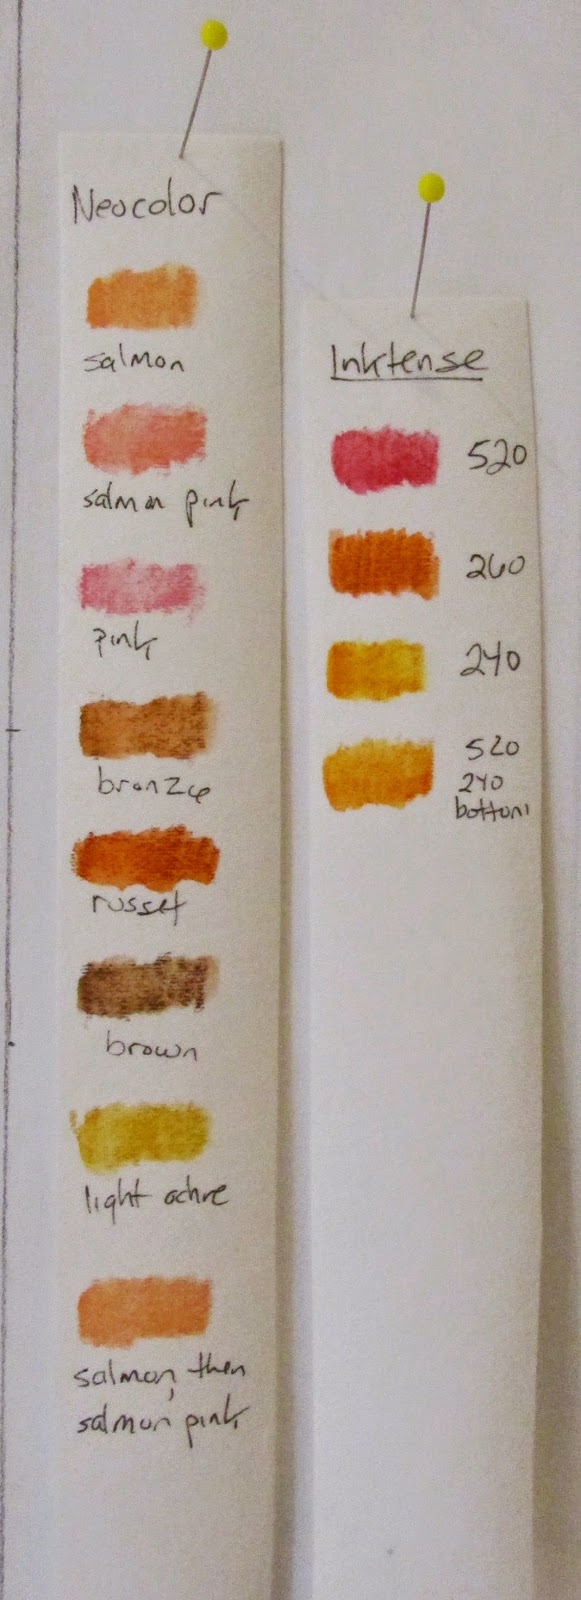 Neocolor
salmon
salmon pink
pink
bronze
russet
brown
light ochre
salmon, then
salmon pink
Inktense
520
260
240
520
240
bottom